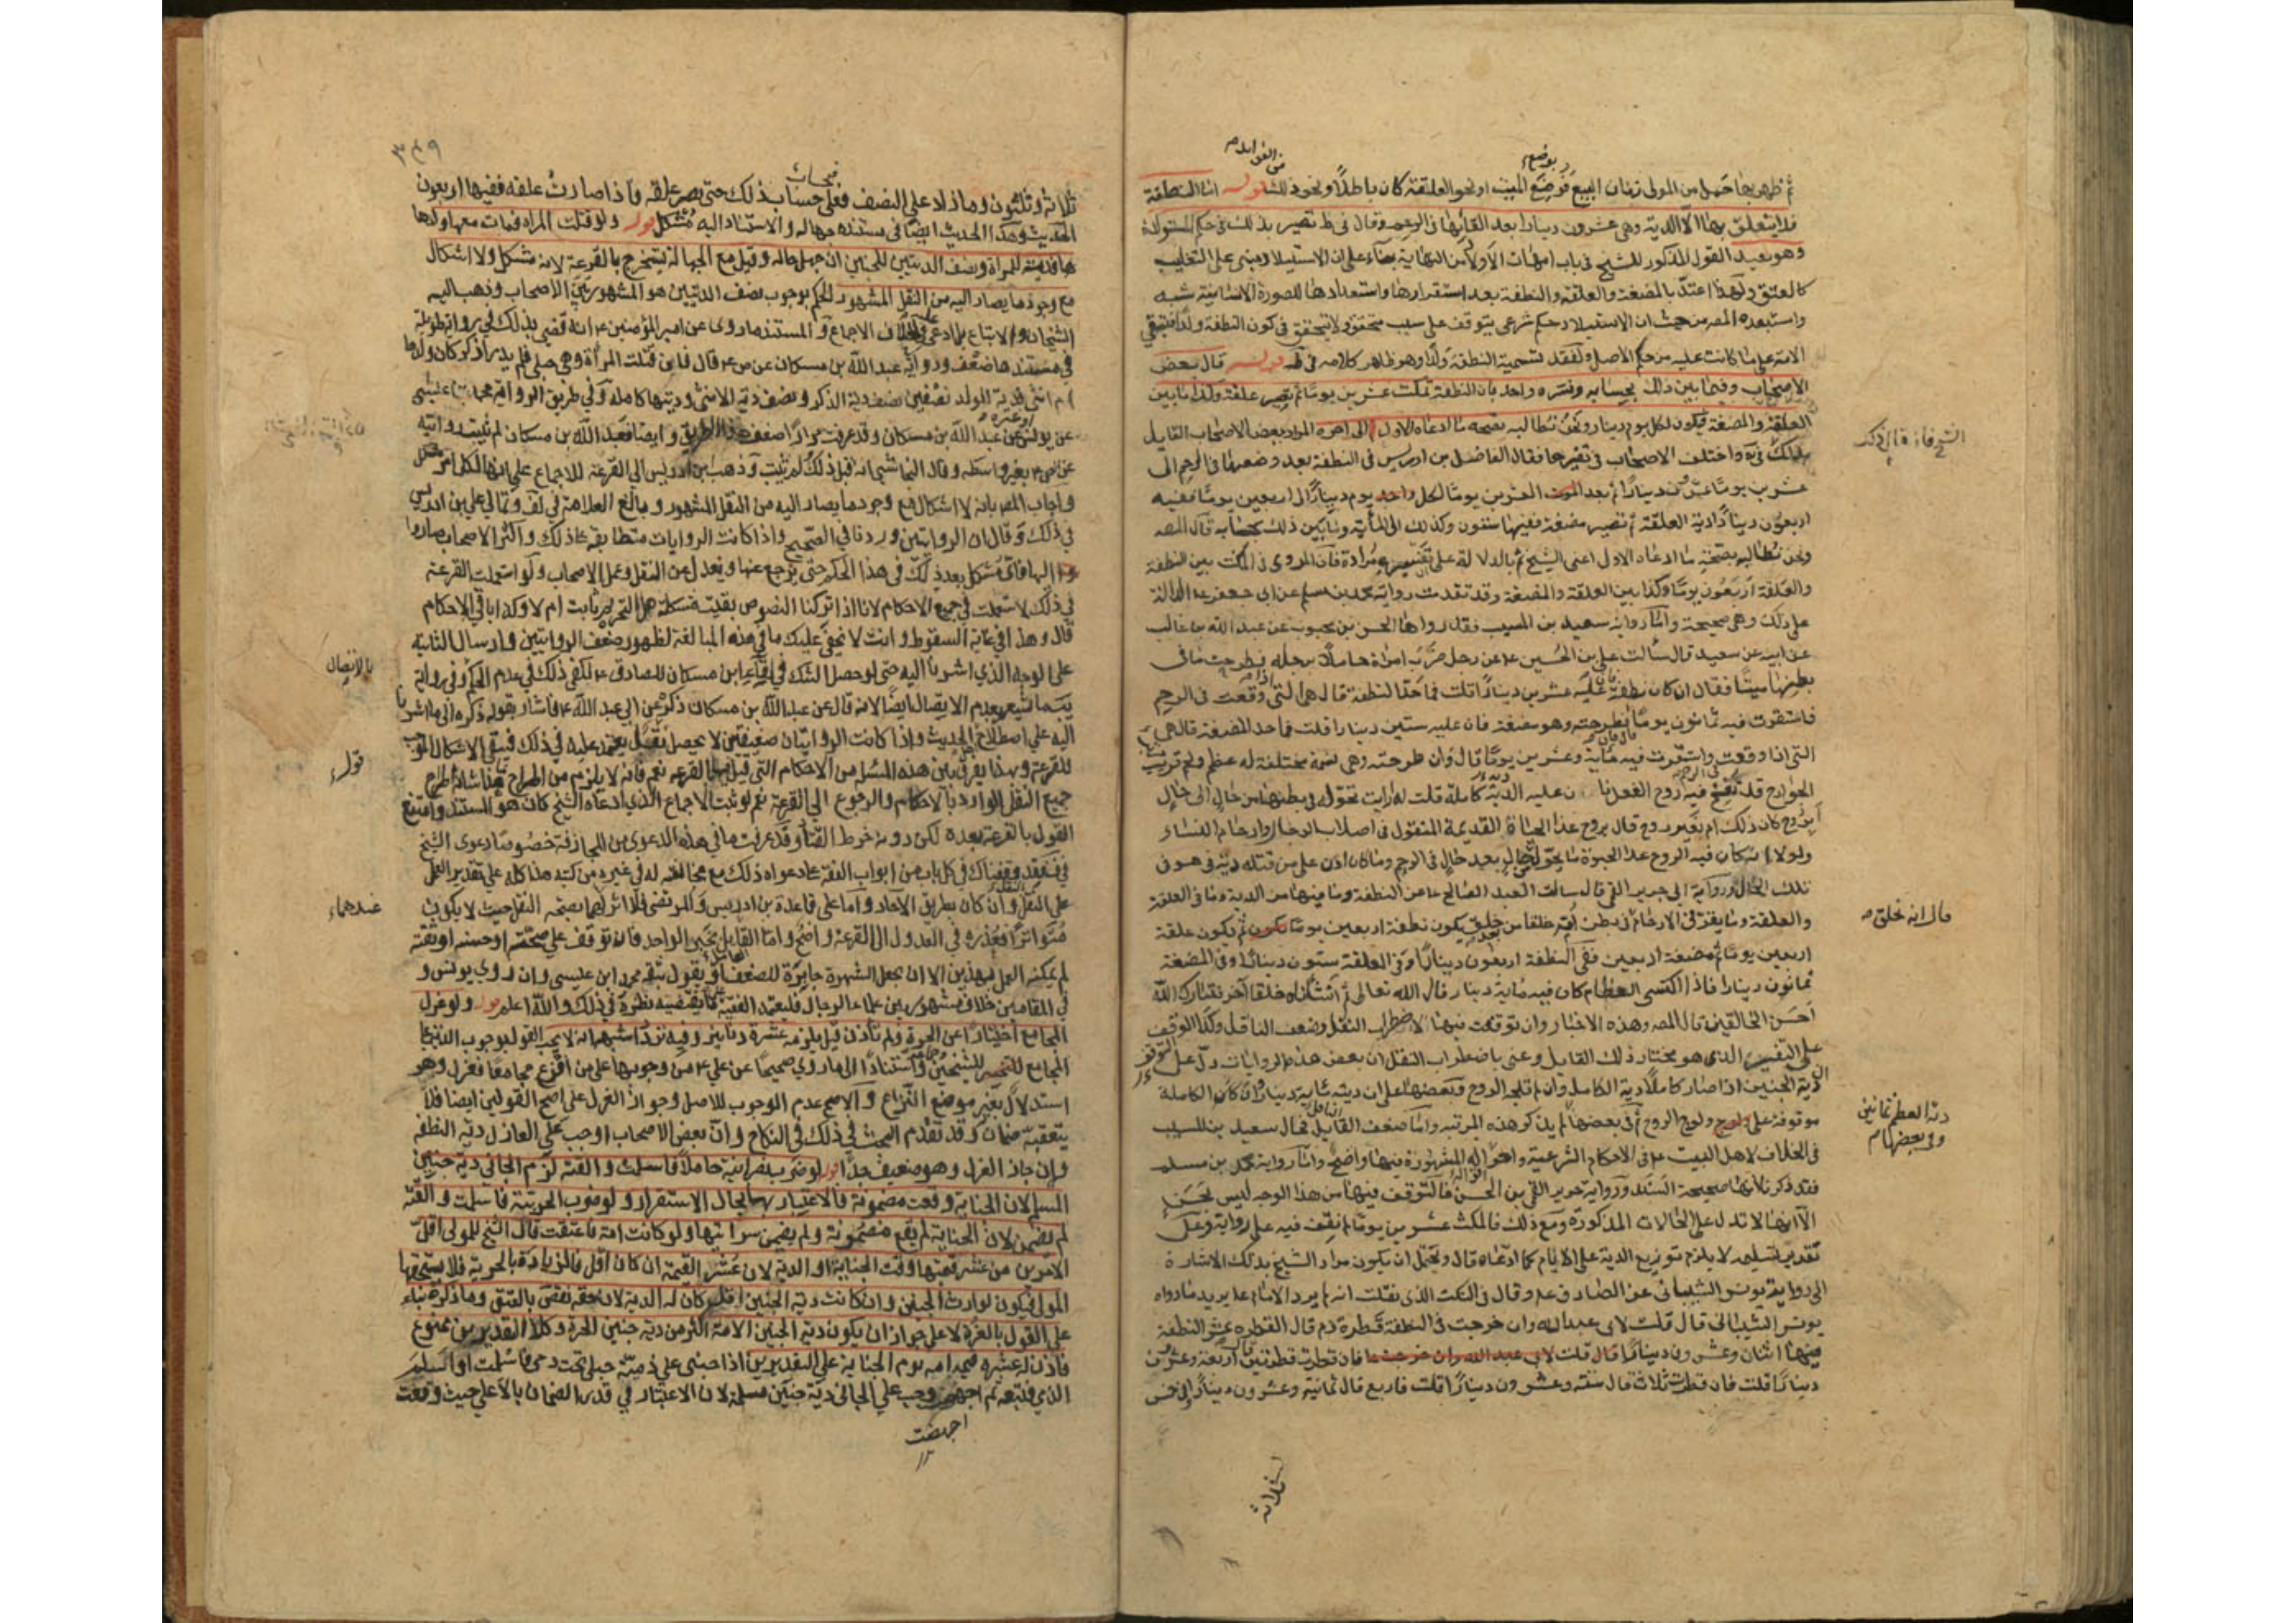 ثم ظهر بها حمل من المولى زمان البيع فوضع الميت او نحو العلقة كان باطلا ونحو ذلك قوله اما النطفة
فلا يتعلق بها الا الدية وهي عشرون دينارا بعد القائها في الرحم وقال في ط تصير بذلك في حكم المستولدة
وهو بعيد القول المذكور للشيخ في باب امهات الاولاد من النهاية بناء على ان الاستيلاد مبنى على التغليب
كالعتق ولهذا اعتد بالمضغة والعلقة والنطفة بعد استقرارها واستعدادها للصورة الانسانية شبه
واستبعده المصر من حيث ان الاستيلاد حكم شرعي يتوقف على سبب متحقق ولا يتحقق في كون النطفة ولدا فتبقى
الامة على ما كانت عليه من حكم الاصل لفقد تسمية النطفة ولدا وهو ظاهر كلامه في قوله قال بعض
الاصحاب وفيما بين ذلك بحسابه وفسره واحد بان النطفة تمكث عشرين يوما ثم تصير علقة وكذا ما بين
العلقة والمضغة فيكون لكل يوم دينار ونحن نطالبه بصحة ما ادعاه الاول الى اخره المراد ببعض الاصحاب القايل
بذلك في واختلف الاصحاب في تفسيرها فقال الفاضل بن ادريس في النطفة بعد وضعها في الرحم الى
عشرين يوما عشرون دينارا ثم بعد العشرين يوما لكل يوم دينارا الى اربعين يوما ففيه
اربعون دينارا دية العلقة ثم تصير مضغة ففيها ستون وكذلك الى المأية وما بين ذلك بحسابه قال المصه
ونحن نطالبه بصحة ما ادعاه الاول اعني الشيخ ثم بالدلالة على تفسيره مراده فان المروى في المكث بين النطفة
والعلقة اربعون يوما وكذا بين العلقة والمضغة وقد تقدمت رواية محمد بن مسلم عن ابي جعفر ع الدالة
على ذلك وهي صحيحة واما رواية سعيد بن المسيب فقد رواها الحسن بن محبوب عن عبد الله بن غالب
عن ابيه عن سعيد قال سألت علي بن الحسين ع عن رجل ضرب امرأة حاملا برجله فطرحت ما في
بطنها ميتا فقال ان كان نطفة فان عليه عشرين دينارا قلت فما حد النطفة قال هي التي وقعت في الرحم
فاستقرت فيه ثمانون يوما فان طرحته وهو مضغة فان عليه ستين دينارا قلت فما حد المضغة قال هي
التي اذا وقعت واستقرت فيه مائة وعشرين يوما قال وان طرحته وهي نسمة مختلفة له عظم ولحم مرتب
الجوارح قد نفخ فيه روح العقل فان عليه الدية كاملة قلت له ارايت تحوله في بطنها من حال الى حال
ابروح كان ذلك ام بغير روح قال بروح غذا الحياة القديمة المنقول في اصلاب الرجال وارحام النساء
ولولا انه كان فيه الروح غذا الحيوة ما تحول بعد حال في الرحم وما كان اذن على من قتله دية وهو في
تلك الحال ورواية ابي جرير القمي قال سالت العبد الصالح ع عن النطفة وما فيها من الدية وما في العلقة
والعلقة وما يقر في الارحام في بطن امه خلقا من خلق يكون نطفة اربعين يوما ثم يكون علقة
اربعين يوما ثم مضغة اربعين ففي النطفة اربعون دينارا وفي العلقة ستون دينارا وفي المضغة
ثمانون دينارا فاذا اكتسى العظام كان فيه مأية دينار قال الله تعالى ثم انشأناه خلقا آخر فتبارك الله
احسن الخالقين قال المصه وهذه الاخبار وان توقفت فيها لاضطراب النقل وضعف الناقل وكذا التوقف
على التفسير الذي هو مختار ذلك القايل وعنى باضطراب النقل ان بعض هذه الروايات دل على
ان دية الجنين اذا صار كاملا دية الكامل وان لم تلجه الروح وبعضها على ان ديته مأية دينار وان كان الكاملة
موقوفة على ولوج الروح ثم في بعضها لم يذكر هذه المرتبه واما ضعف الناقل فحال سعيد بن المسيب
في الخلاف لاهل البيت ع في الاحكام الشرعية واحواله المشهورة فيها واضح واما رواية محمد بن مسلم
فقد ذكرنا انها صحيحة السند ورواية جرير القمي بن الحسن فالتوقف فيها من هذا الوجه ليس بحسن
الا انها لا تدل على الحالات المذكورة ومع ذلك فالمكث عشرين يوما لم نقف فيه على رواية وعلى
تقدير تسليمه لا يلزم توزيع الدية على الايام كما ادعاه قال ويحتمل ان يكون مراد الشيخ بذلك الاشارة
الى رواية يونس الشيباني عن الصادق ع وقال في النكت الذي نقلت انه لم يرد الامام ع يريد ما رواه
يونس الشيباني قال قلت لابي عبد الله وان خرجت في النطفة قطرة دم قال القطرة عشر النطفة
فيها اثنان وعشرون دينارا قال قلت فان قطرت قطرتين قال اربعة وعشرون
دينارا قلت فان قطرت ثلاث قال ستة وعشرون دينارا قلت فاربع قال ثمانية وعشرون دينارا وفي خمس
الشيخ فانه قال ذلك
قال انه خلق
دية العظم ثمانين
وفي بعضها لم
ثلاثة
٣٤٩
ثلاثة وثلثون وما زاد على النصف فعلى حساب ذلك حتى يصير علقه فاذا صارت علقه ففيها اربعون
الحديث وهذا الحديث ايضا في سنده جهالة والاستناد اليه مشكل قوله ولو قتلت المراة فمات معها ولدها
فدية للمرأة ونصف الديتين للجنين ان جهل حاله وقيل مع الجهالة يستخرج بالقرعة لانه مشكل ولا اشكال
مع وجود ما يصار اليه من النقل المشهور الحكم بوجوب نصف الديتين هو المشهور بين الاصحاب وذهب اليه
الشيخان والاتباع بل ادعى الاجماع والمستند ما روى عن امير المؤمنين ع انه قضى بذلك في رواية طويلة
في سندها ضعف ورواية عبد الله بن مسكان عن ص ع قال فان قتلت المرأة وهي حبلى فلم يدر أذكر كان ولدها
ام انثى فدية الولد نصفين نصف دية الذكر ونصف دية الانثى وديتها كاملة وفي طريق الرواية محمد بن عيسى
عن يونس عن عبد الله بن مسكان وقد عرفت مرارا ضعف هذا الطريق وايضا فعبد الله بن مسكان لم تثبت روايته
عن ص ع بغير واسطه وقال النجاشي انه قيل ذلك لم يثبت وذهب بن ادريس الى القرعة للاجماع على انها لكل امر مشكل
واجاب المصر بانه لا اشكال مع وجود ما يصار اليه من النقل المشهور وبالغ العلامة في لف وتعالى على بن ادريس
في ذلك وقال ان الروايتين وردتا في الصحيح واذا كانت الروايات متطابقة على ذلك واكثر الاصحاب صاروا
اليها فاي مشكل بعد ذلك في هذا الحكم حتى يرجع عنها ويعدل عن النقل وعمل الاصحاب ولو استعملت القرعة
في ذلك لاستعملت في جميع الاحكام لانا اذا تركنا النصوص بقيت مشكلة هل التحريم ثابت ام لا وكذا باقي الاحكام
قال وهذا في غاية السقوط وانت لا يخفى عليك ما في هذه المبالغة لظهور ضعف الروايتين وارسال الثانية
على الوجه الذي اشرنا اليه حتى لو حصل الشك في لقاء ابن مسكان للصادق ع لكفى ذلك في عدم الحكم وفي رواية
يب ما يشعر بعدم الايصال ايضا لانه قال عن عبد الله بن مسكان ذكره عن ابي عبد الله ع فاشار بقوله ذكره الى ما اشرنا
اليه على اصطلاح الحديث واذا كانت الروايتان ضعيفتين لا يحصل يعتمد عليه في ذلك فيبقى الاشكال الموجب
للقرعة وبهذا يفرق بين هذه المسئلة من الاحكام التي قبل القرعه نعم فانه لا يلزم من اطراح هذا شأنه اطراح
جميع النقل الوارد بالاحكام والرجوع الى القرعة نعم لو ثبت الاجماع الذي ادعاه الشيخ كان هو المستند وامتنع
القول بالقرعة بعده لكن دونه خرط القتاد وقد عرفت ما في هذه الدعوى من المجازفة خصوصا دعوى الشيخ
في كل باب من ابواب الفقه على دعواه ذلك مع مخالفته له في غيره من كتبه هذا كله على تقدير العمل
على النقل وان كان بطريق الآحاد واما على قاعدة بن ادريس والمرتضى فلا اثر لهما بصحة النقل حيث لا يكون
متواترا فعذره في العدول الى القرعة واضح واما القايل بخبر الواحد فانه توقف على صحته او حسنه او ثقته
لم يمكنه العمل بهذين الا ان يجعل الشهرة جابرة للضعف او يقول بثقة محمد ابن عيسى وان روى يونس و
في المقامين خلاف مشهور بين علماء الرجال فليعتمد الفقيه ما يقتضيه نظره في ذلك والله اعلم قوله ولو عزل
المجامع اختيارا عن الحرة ولم تأذن قيل يلزمه عشرة دنانير وفيه تردد اشبهه انه لا يجب القول بوجوب الدية على
المجامع للشيخين وجماعة استنادا الى ما روي صحيحا عن علي ع من وجوبها على من افزع مجامعا فعزل وهو
استدلال بغير موضع النزاع والاصح عدم الوجوب للاصل وجواز العزل على اصح القولين ايضا فلا
يتعقبه ضمان وقد تقدم البحث في ذلك في النكاح وان بعض الاصحاب اوجب على العازل دية النطفة
وان جاز العزل وهو ضعيف جدا قوله لو ضرب نصرانية حاملا فاسلمت والقته لزم الجاني دية جنين
المسلم لان الجناية وقعت مضمونة فالاعتبار بها بحال الاستقرار ولو ضرب الحربية فاسلمت والقته
لم يضمن لان الجناية لم تقع مضمونة ولم يضمن سرايتها ولو كانت امة فاعتقت قال الشيخ للمولى اقل
الامرين من عشر قيمتها وقت الجناية او الدية لان عشر القيمة ان كان اقل فالزيادة بالحرية فلا يستحقها
المولى فيكون لوارث الجنين وان كانت دية الجنين اقل كان له الدية لان حقه نقص بالعتق وما ذكره بناء
على القول بالغرة لا على جواز ان يكون دية الجنين الامة اكثر من دية جنين الحرة وكلا التقديرين ممنوع
فاذن له عشر قيمة امه يوم الجناية على التقديرين اذا جنى على ذمية حبلى تحت ذمي فاسلمت او اسلم
الذمي فتبعه ثم اجهضت وجب على الجاني دية جنين مسلم لان الاعتبار في قدر الضمان بالاعلى حيث وقعت
اجهضت
بالايصال
قوله
عندهما